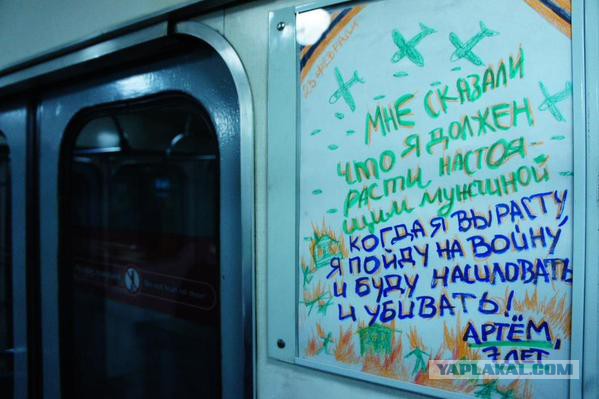 23 ФЕВРАЛЯ
МНЕ СКАЗАЛИ
ЧТО Я ДОЛЖЕН
РАСТИ НАСТОЯ-
ЩИМ МУЖЧИНОЙ
КОГДА Я ВЫРАСТУ,
Я ПОЙДУ НА ВОЙНУ,
И БУДУ НАСИЛОВАТЬ
И УБИВАТЬ!
АРТЁМ,
7 ЛЕТ
YAPLAKAL.COM